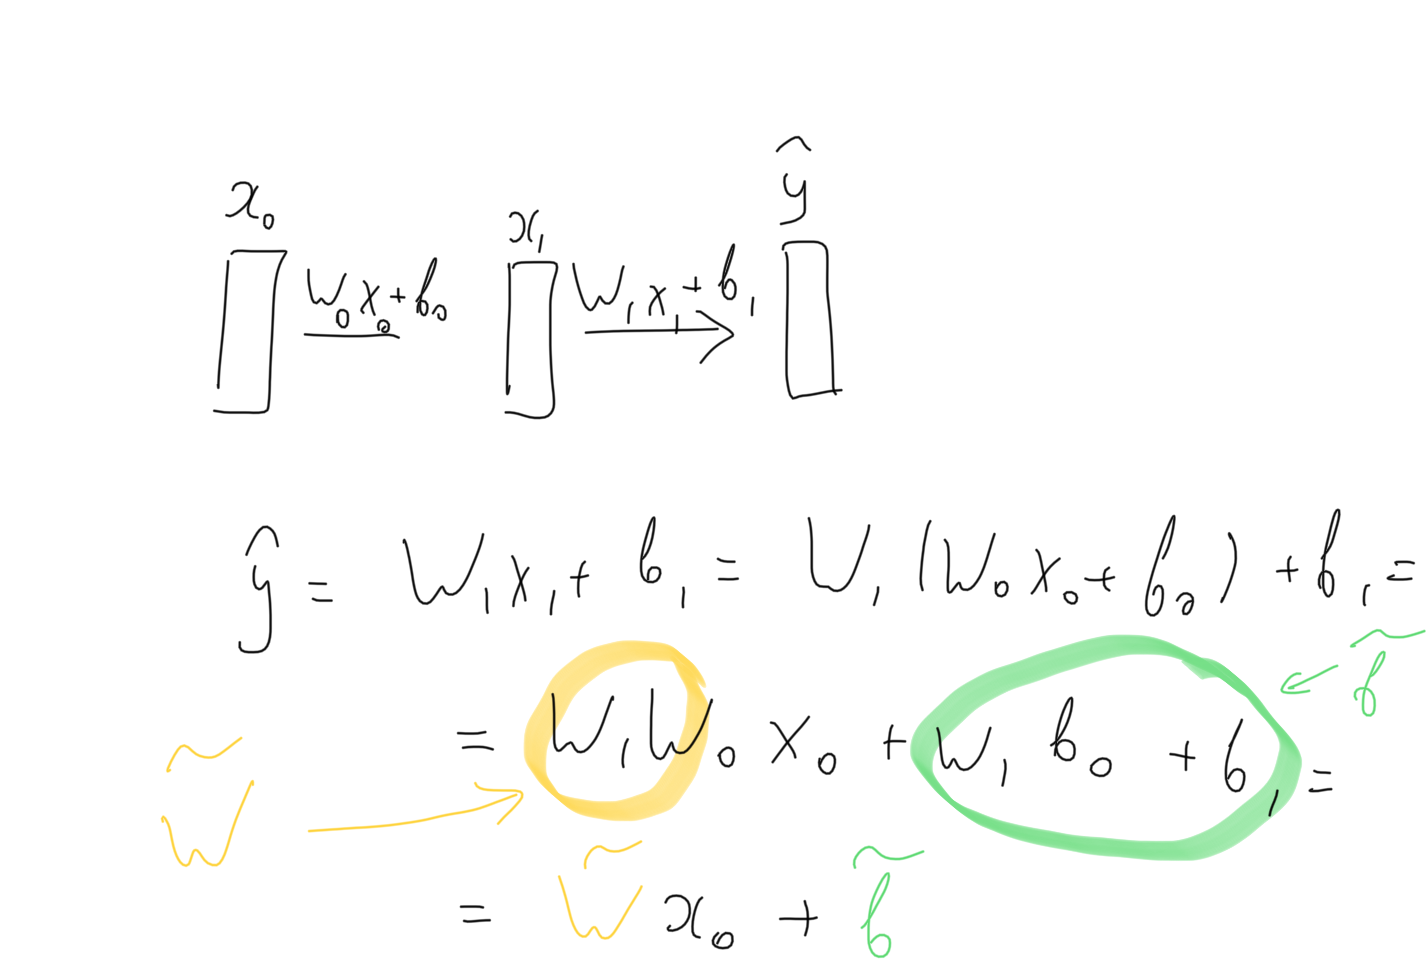 x₀ x₁ ŷ
W₀x₀+b₀ W₁x₁+b₁
ŷ = W₁x₁ + b₁ = W₁(W₀x₀ + b₀) + b₁ =
b̃
= W₁W₀ x₀ + W₁ b₀ + b₁ =
W̃
= W̃ x₀ + b̃